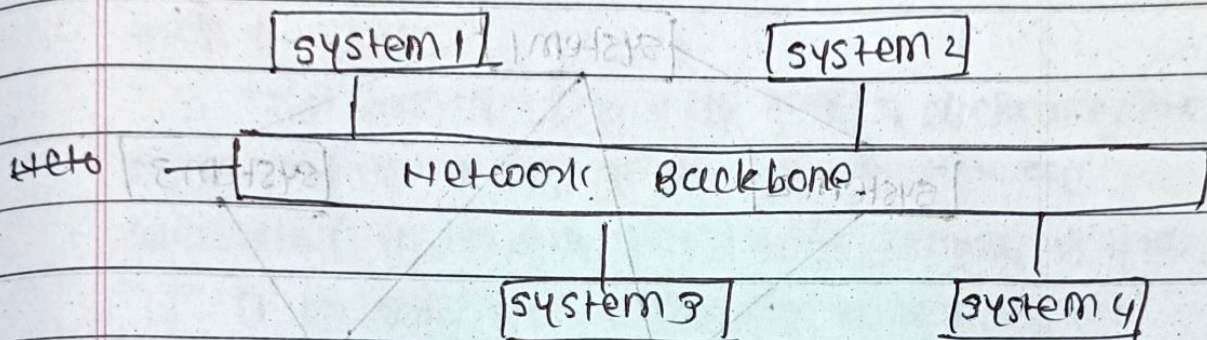 system 1
system 2
Network Backbone
system 3
system 4